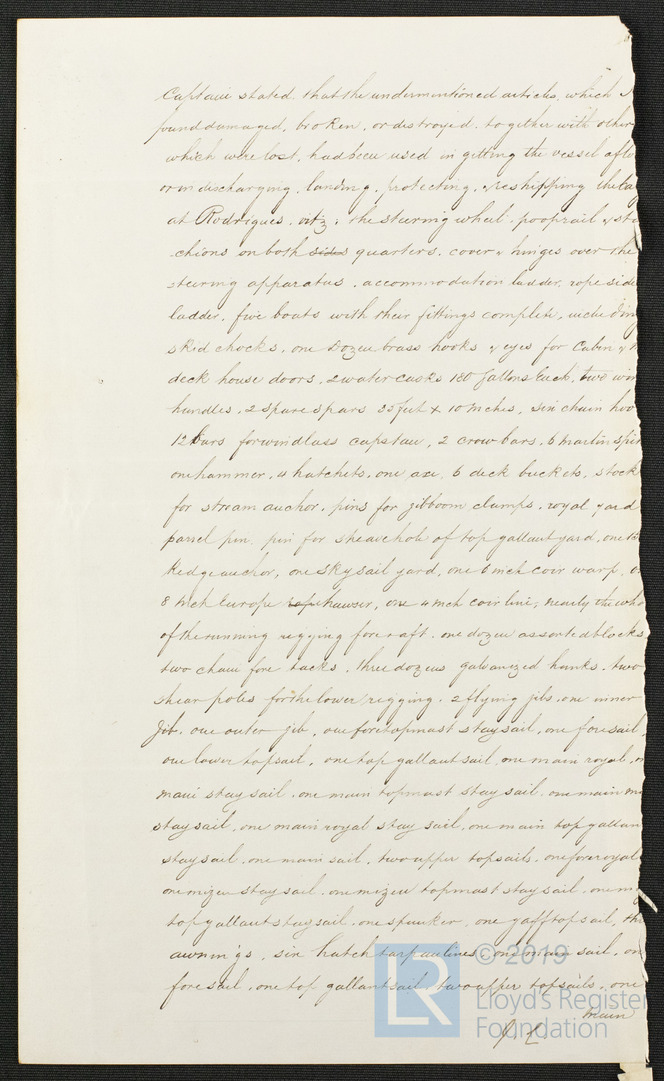 Captain stated that the undermentioned articles, which I
found damaged, broken, or destroyed, together with other
which were lost, had been used in getting the vessel afl
or in discharging, landing, protecting, & reshipping the
at Rodrigues, vizt; the steering wheel, pooprail & sta
chions on both sides quarters, cover & hinges over the
steering apparatus, accommodation ladder, rope side
ladder, five boats with their fittings complete, including
skid chocks, one dozen brass hooks & eyes for Cabin &
deck house doors, 2 water casks 180 gallons each, two
handles, 2 spare spars 35 feet x 10 inches, six chain hoo
12 bars for windlass capstan, 2 crow bars, 6 marlin spi
one hammer, 4 hatchets, one axe, 6 deck buckets, stock
for stream anchor, pins for jibboom clamps, royal yard
parrel pin, pin for sheavehole of top gallant yard, one
Kedge anchor, one sky sail yard, one 6 inch coir warp,
8 inch Europe rope hawser, one 4 inch coir line, nearly the who
of the running rigging fore & aft, one dozen assorted blocks
two chain fore tacks, three dozens galvanized hanks, two
shear poles for the lower rigging, 2 flying jibs, one inner
Jib, one outer jib, one foretopmast staysail, one foresail,
one lower topsail, one top gallant sail, one main royal,
main stay sail, one main topmast stay sail, one main
staysail, one main royal stay sail, one main top gallan
staysail, one main sail, two upper topsails, one fore royal
one mizen stay sail, one mizen topmast stay sail, one
top gallant stay sail, one spanker, one gaff topsail, th
awnings, six hatch tarpaulines, one main sail, on
fore sail, one top gallant sail, two upper topsails, one
main
© 2019
LR
Lloyd's Register
Foundation